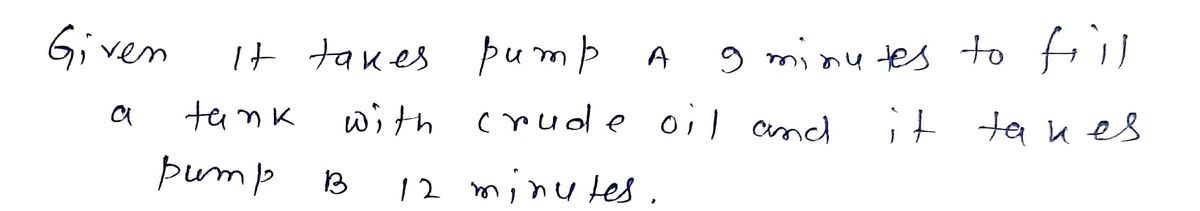 Given It takes pump A 9 minutes to fill
a tank with crude oil and it takes
pump B 12 minutes.